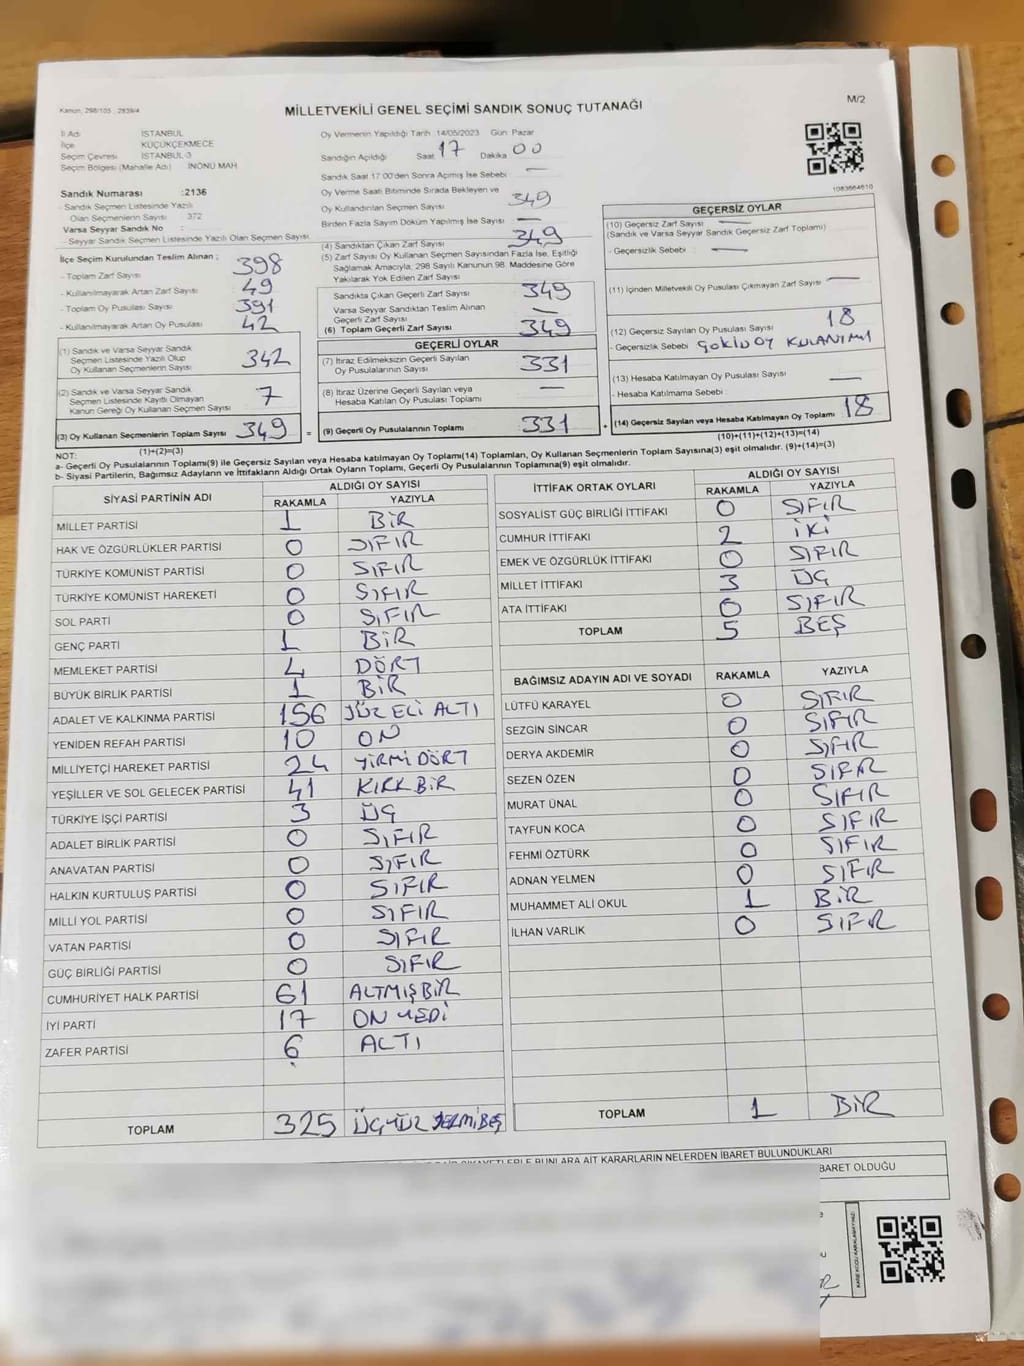 Kanun, 298/105 , 2839/4
MİLLETVEKİLİ GENEL SEÇİMİ SANDIK SONUÇ TUTANAĞI
M/2
İl Adı İSTANBUL
İlçe KÜÇÜKÇEKMECE
Seçim Çevresi İSTANBUL-3
Seçim Bölgesi (Mahalle Adı) İNÖNÜ MAH
Sandık Numarası :2136
- Sandık Seçmen Listesinde Yazılı
Olan Seçmenlerin Sayısı 372
Varsa Seyyar Sandık No :
- Seyyar Sandık Seçmen Listesinde Yazılı Olan Seçmen Sayısı
İlçe Seçim Kurulundan Teslim Alınan ;
- Toplam Zarf Sayısı 398
- Kullanılmayarak Artan Zarf Sayısı 49
- Toplam Oy Pusulası Sayısı 391
- Kullanılmayarak Artan Oy Pusulası 42
(1) Sandık ve Varsa Seyyar Sandık
Seçmen Listesinde Yazılı Olup
Oy Kullanan Seçmenlerin Sayısı 342
(2) Sandık ve Varsa Seyyar Sandık
Seçmen Listesinde Kayıtlı Olmayan
Kanun Gereği Oy Kullanan Seçmen Sayısı 7
(3) Oy Kullanan Seçmenlerin Toplam Sayısı 349
(1)+(2)=(3)
Oy Vermenin Yapıldığı Tarih 14/05/2023 Gün Pazar
Sandığın Açıldığı Saat 17 Dakika 00
Sandık Saat 17:00'den Sonra Açımış İse Sebebi —
Oy Verme Saati Bitiminde Sırada Bekleyen ve
Oy Kullandırılan Seçmen Sayısı 349
Birden Fazla Sayım Döküm Yapılmış İse Sayısı —
(4) Sandıktan Çıkan Zarf Sayısı 349
(5) Zarf Sayısı Oy Kullanan Seçmen Sayısından Fazla İse, Eşitliği
Sağlamak Amacıyla, 298 Sayılı Kanunun 98. Maddesine Göre
Yakılarak Yok Edilen Zarf Sayısı
Sandıkta Çıkan Geçerli Zarf Sayısı 349
Varsa Seyyar Sandıktan Teslim Alınan
Geçerli Zarf Sayısı —
(6) Toplam Geçerli Zarf Sayısı 349
GEÇERLİ OYLAR
(7) İtiraz Edilmeksizin Geçerli Sayılan
Oy Pusulalarının Sayısı 331
(8) İtiraz Üzerine Geçerli Sayılan veya
Hesaba Katılan Oy Pusulası Toplamı —
= (9) Geçerli Oy Pusulalarının Toplamı 331
1083664610
GEÇERSİZ OYLAR
(10) Geçersiz Zarf Sayısı —
(Sandık ve Varsa Seyyar Sandık Geçersiz Zarf Toplamı)
- Geçersizlik Sebebi : —
(11) İçinden Milletvekili Oy Pusulası Çıkmayan Zarf Sayısı —
(12) Geçersiz Sayılan Oy Pusulası Sayısı 18
- Geçersizlik Sebebi ÇOKLU OY KULANIMI
(13) Hesaba Katılmayan Oy Pusulası Sayısı —
- Hesaba Katılmama Sebebi :
+ (14) Geçersiz Sayılan veya Hesaba Katılmayan Oy Toplamı 18
(10)+(11)+(12)+(13)=(14)
NOT:
a- Geçerli Oy Pusulalarının Toplamı(9) ile Geçersiz Sayılan veya Hesaba katılmayan Oy Toplamı(14) Toplamları, Oy Kullanan Seçmenlerin Toplam Sayısına(3) eşit olmalıdır. (9)+(14)=(3)
b- Siyasi Partilerin, Bağımsız Adayların ve İttifakların Aldığı Ortak Oyların Toplamı, Geçerli Oy Pusulalarının Toplamına(9) eşit olmalıdır.
SİYASİ PARTİNİN ADI ALDIĞI OY SAYISI
RAKAMLA YAZIYLA
MİLLET PARTİSİ 1 BİR
HAK VE ÖZGÜRLÜKLER PARTİSİ 0 SIFIR
TÜRKİYE KOMÜNİST PARTİSİ 0 SIFIR
TÜRKİYE KOMÜNİST HAREKETİ 0 SIFIR
SOL PARTİ 0 SIFIR
GENÇ PARTİ 1 BİR
MEMLEKET PARTİSİ 4 DÖRT
BÜYÜK BİRLİK PARTİSİ 1 BİR
ADALET VE KALKINMA PARTİSİ 156 YÜZ ELİ ALTI
YENİDEN REFAH PARTİSİ 10 ON
MİLLİYETÇİ HAREKET PARTİSİ 24 YİRMİ DÖRT
YEŞİLLER VE SOL GELECEK PARTİSİ 41 KIRK BİR
TÜRKİYE İŞÇİ PARTİSİ 3 ÜÇ
ADALET BİRLİK PARTİSİ 0 SIFIR
ANAVATAN PARTİSİ 0 SIFIR
HALKIN KURTULUŞ PARTİSİ 0 SIFIR
MİLLİ YOL PARTİSİ 0 SIFIR
VATAN PARTİSİ 0 SIFIR
GÜÇ BİRLİĞİ PARTİSİ 0 SIFIR
CUMHURİYET HALK PARTİSİ 61 ALTMIŞ BİR
İYİ PARTİ 17 ON YEDİ
ZAFER PARTİSİ 6 ALTI
TOPLAM 325 ÜÇ YÜZ YERMİ BEŞ
İTTİFAK ORTAK OYLARI ALDIĞI OY SAYISI
RAKAMLA YAZIYLA
SOSYALİST GÜÇ BİRLİĞİ İTTİFAKI 0 SIFIR
CUMHUR İTTİFAKI 2 İKİ
EMEK VE ÖZGÜRLÜK İTTİFAKI 0 SIFIR
MİLLET İTTİFAKI 3 ÜÇ
ATA İTTİFAKI 0 SIFIR
TOPLAM 5 BEŞ
BAĞIMSIZ ADAYIN ADI VE SOYADI RAKAMLA YAZIYLA
LÜTFÜ KARAYEL 0 SIFIR
SEZGİN SİNCAR 0 SIFIR
DERYA AKDEMİR 0 SIFIR
SEZEN ÖZEN 0 SIFIR
MURAT ÜNAL 0 SIFIR
TAYFUN KOCA 0 SIFIR
FEHMİ ÖZTÜRK 0 SIFIR
ADNAN YELMEN 0 SIFIR
MUHAMMET ALİ OKUL 1 BİR
İLHAN VARLIK 0 SIFIR
TOPLAM 1 BİR
ŞİKAYETLERLE BUNLARA AİT KARARLARIN NELERDEN İBARET BULUNDUKLARI
BARET OLDUĞU
KARE KODU KARALAMAYINIZ!